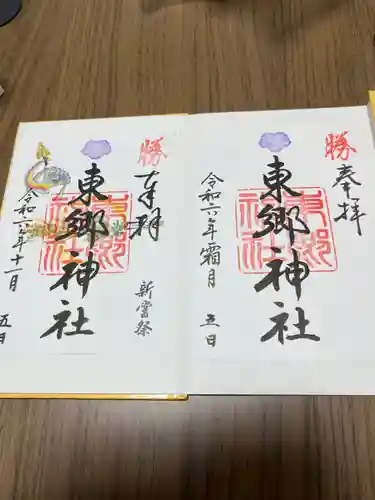 勝
奉拝
新嘗祭
東郷神社
東郷神社
令和六年十一月
五日
勝
奉拝
東郷神社
東郷神社
令和六年霜月
五日